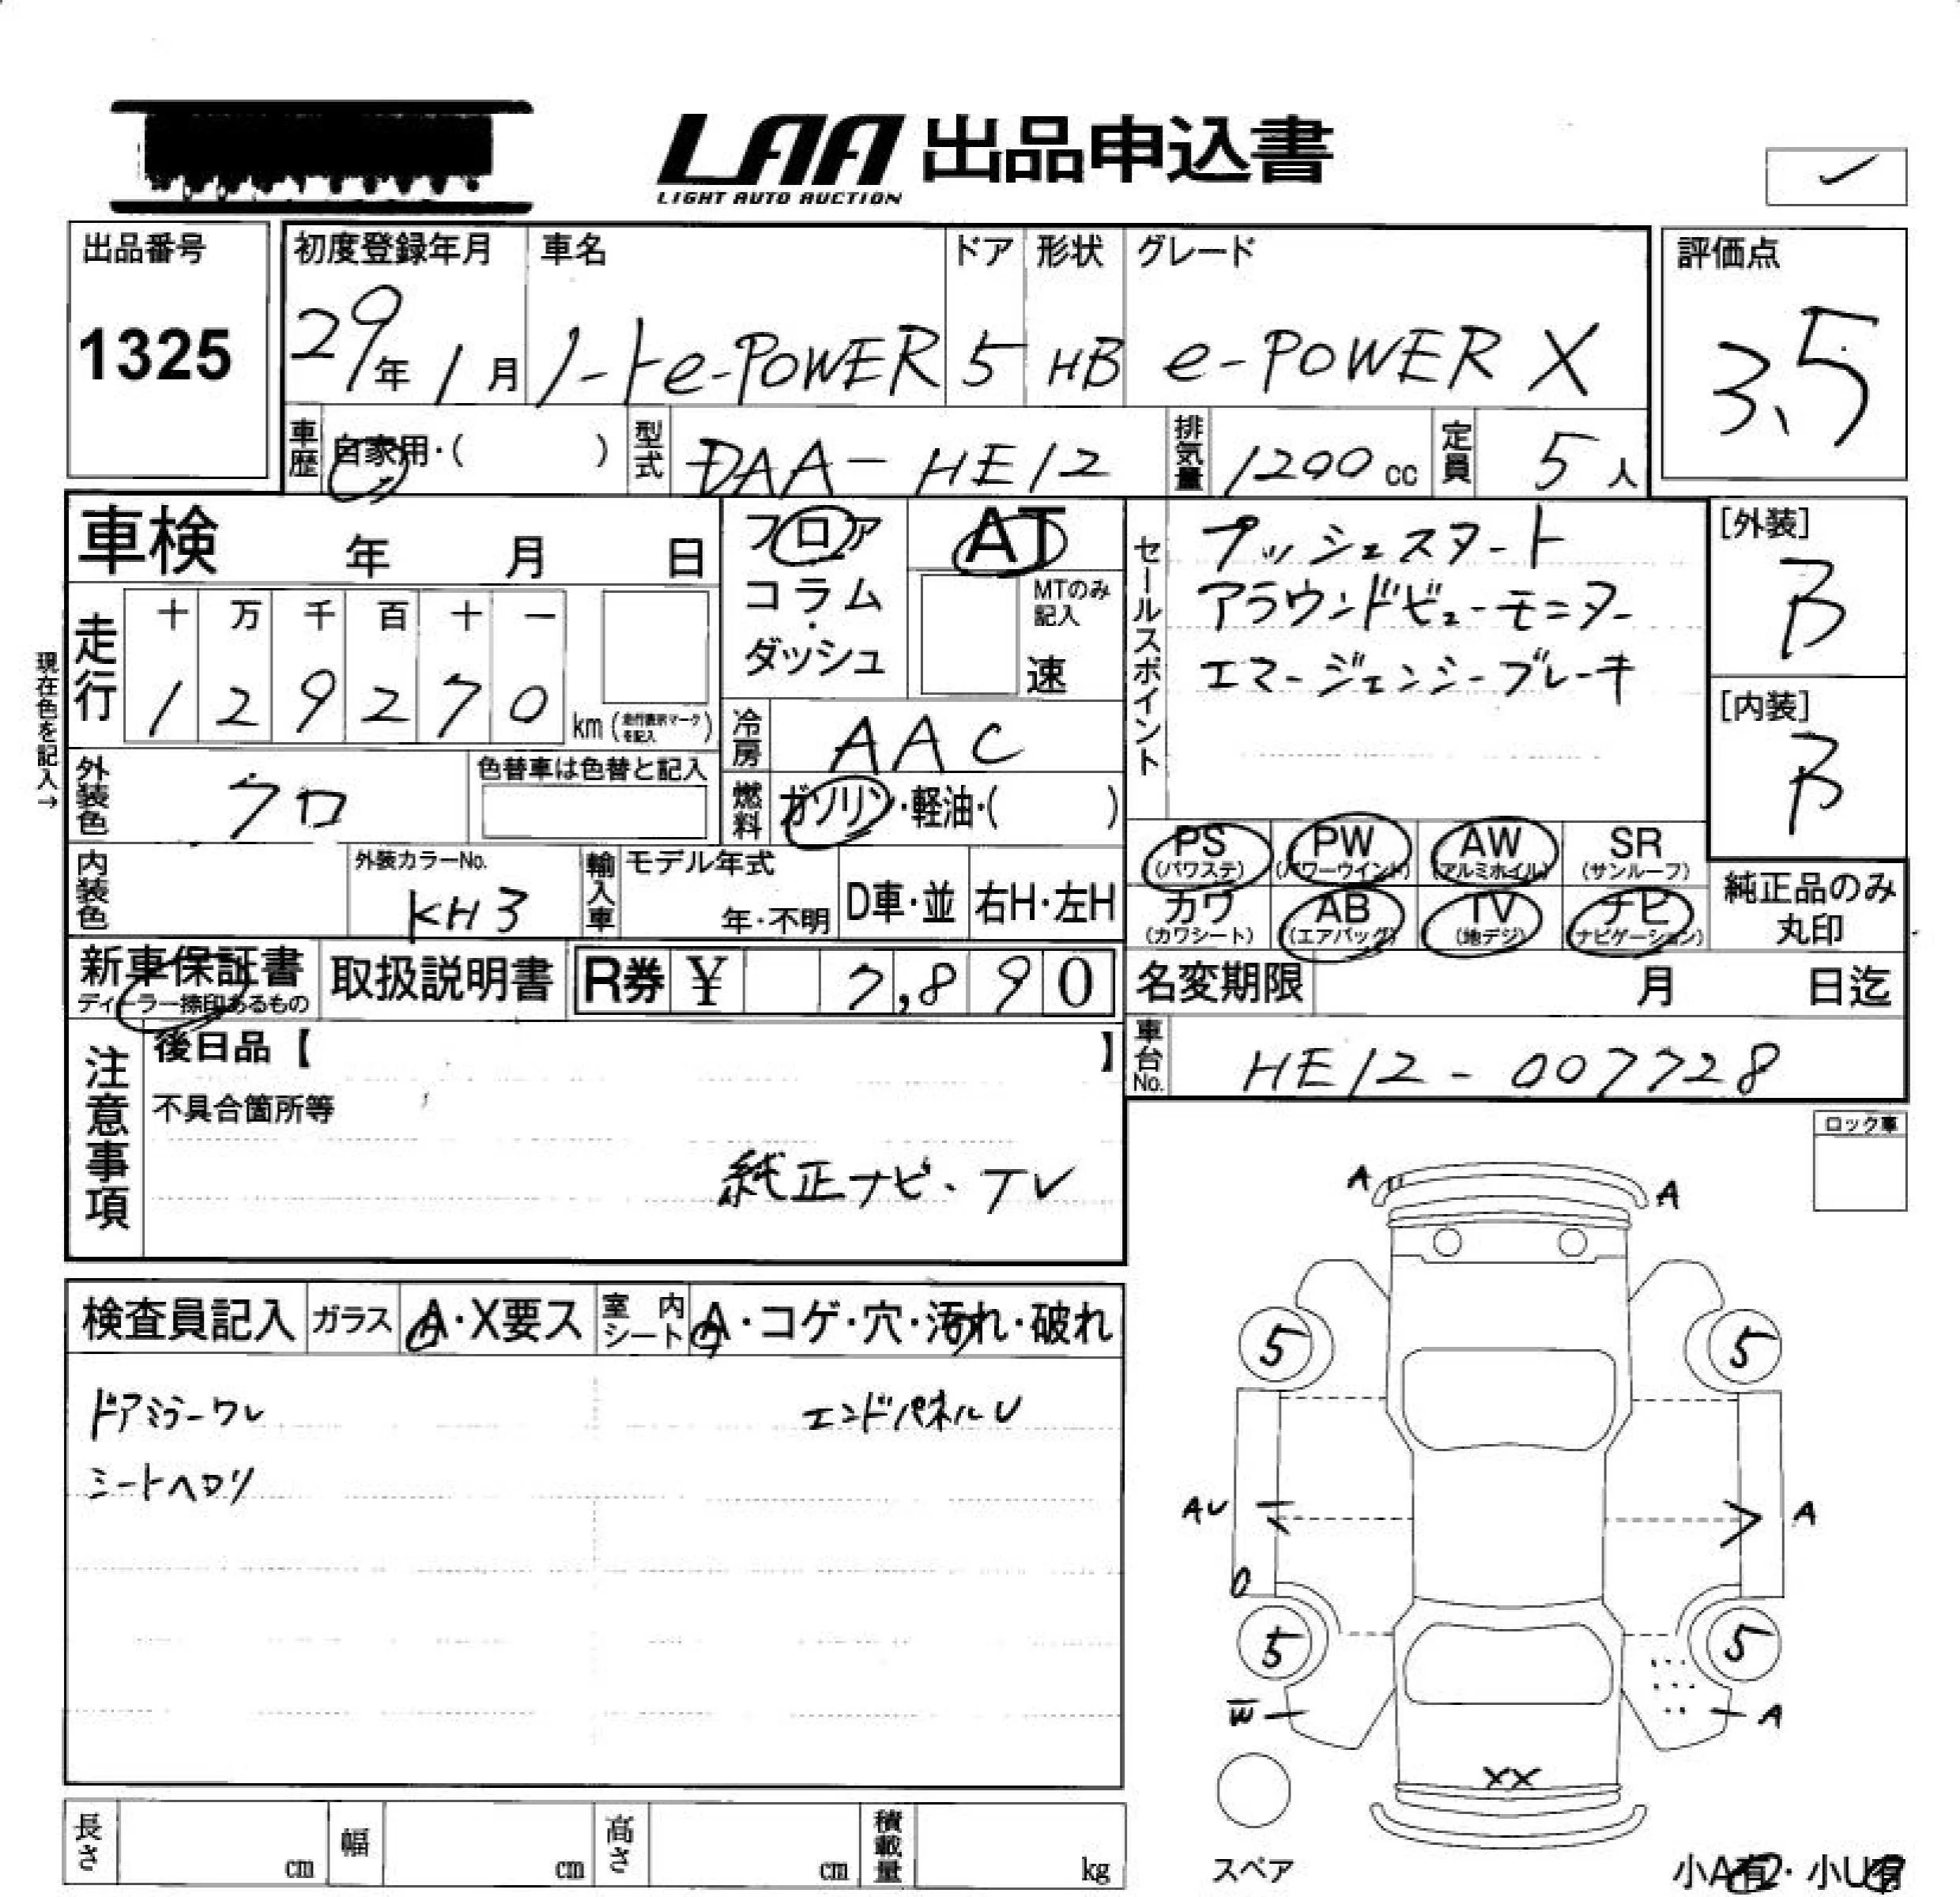 LAA 出品申込書
LIGHT AUTO AUCTION
出品番号
1325
初度登録年月
29年 1月
車名
ノートe-POWER
ドア
5
形状
HB
グレード
e-POWER X
評価点
3.5
車歴
自家用・( )
型式
DAA-HE12
排気量
1200 cc
定員
5人
車検 年 月 日
フロア
コラム
・
ダッシュ
AT
MTのみ
記入
速
セールスポイント
プッシュスタート
アラウンドビューモニター
エマージェンシーブレーキ
[外装]
B
[内装]
B
現在色を記入→
走行
十 万 千 百 十 一
1 2 9 2 7 0
km (走行表示マークを記入)
冷房
AAC
外装色
クロ
色替車は色替と記入
燃料
ガソリン・軽油・( )
PS (パワステ)
PW (パワーウインド)
AW (アルミホイル)
SR (サンルーフ)
内装色
外装カラーNo.
KH3
輸入車
モデル年式
年・不明
D車・並
右H・左H
カワ (カワシート)
AB (エアバッグ)
TV (地デジ)
ナビ (ナビゲーション)
純正品のみ
丸印
新車保証書
ディーラー捺印あるもの
取扱説明書
R券 ¥ 7,890
名変期限 月 日迄
注意事項
後日品【 】
不具合箇所等
純正ナビ・TV
車台No.
HE12-007728
ロック車
A A
検査員記入
ガラス
A・X要ス
室内シート
A・コゲ・穴・汚れ・破れ
ドアミラーワレ
エンドパネルU
シートヘタリ
5 5
AU A
5 5
W A
XX
スペア
長さ cm
幅 cm
高さ cm
積載量 kg
小A有・小U有